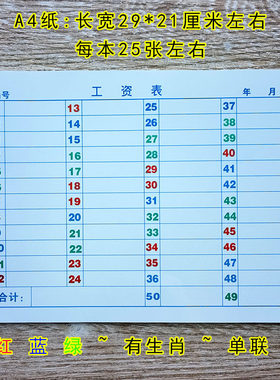 A4纸:长宽29*21厘米左右
每本25张左右
工 资 表
号
13 25 37
14 26 38
15 27 39
16 28 40
17 29 41
18 30 42
19 31 43
20 32 44
21 33 45
22 34 46
23 35 47
24 36 48
合计: 50 49
红 蓝 绿 ~ 有生肖 ~ 单联